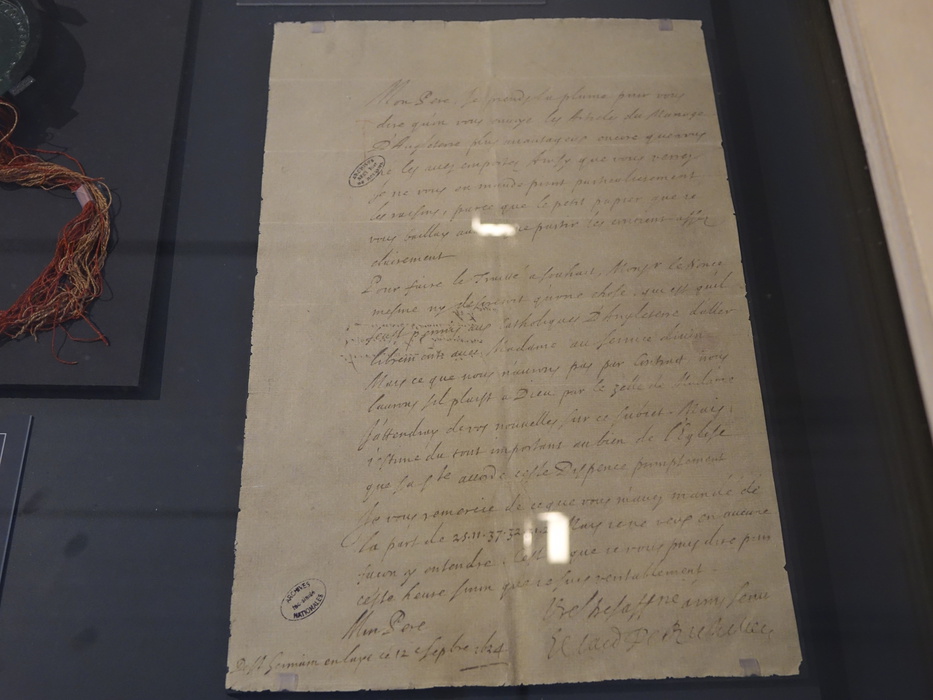 Mon Pere, Je prends la plume pour vous
dire quon vous envoye les Articles du Mariage
D'Angleterre plus avantageux encore que vous
ne les avez emportez Ainsy que vous verres
Je ne vous en mande point particulierement
les raisons, parce que le petit papier que je
vous baillay partir les contient assez
clairement
Pour faire le Traitté a souhait, Monsr le Nonce
mesme ny desireroit qu'une chose, qui est qu'il
fust permis aux Catholiques D'Angleterre d'aller
librement avec Madame au service divin
Mais ce que nous n'aurons pas par Contract nous
l'aurons s'il plaist a Dieu par le zelle de Madame
J'attendray de vos nouvelles sur ce suject. Mais
j'estime du tout important au bien de l'Eglise
que sa Ste accorde ceste Dispence promptement
Je vous remercie de ce que vous m'avez mandé de
la part de 25.11.37.32 Mais je ne veux en aucune
facon y entendre. C'est que je vous puis dire pour
ceste heure sinon que je suis veritablement
Mon Pere
Vre tres affné a vous servir
Le Card De Richelieu
De St Germain en laye ce 12 septbre 1624
ARCHIVES
NATIONALES